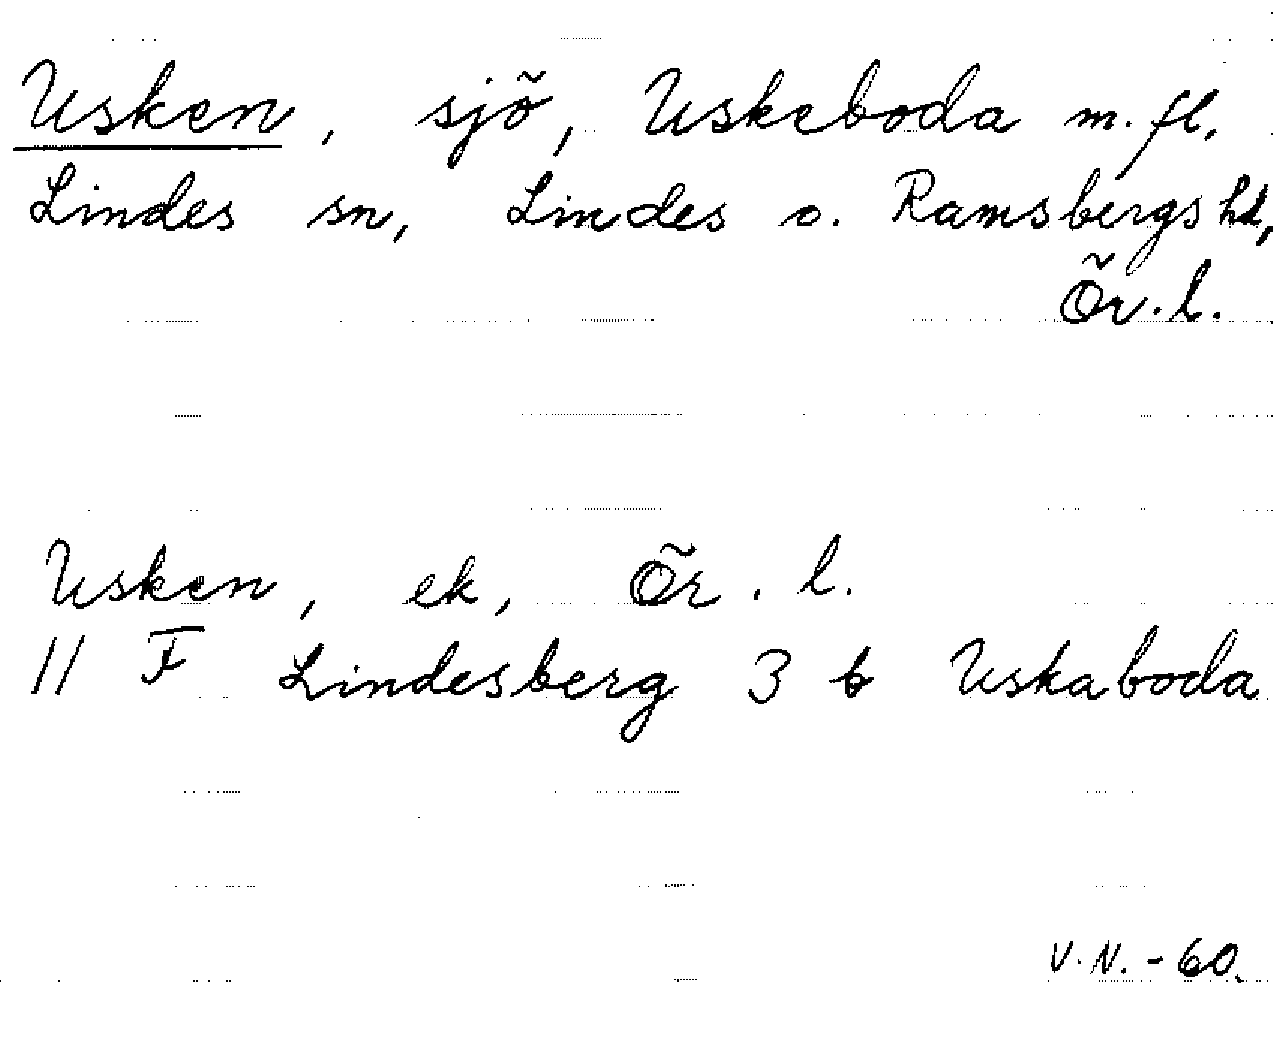 Usken, sjö, Uskeboda m. fl.
Lindes sn, Lindes o. Ramsbergs hd,
Ör. l.
Usken, ek, Ör. l.
11 F Lindesberg 3 b Uskaboda
V. N. - 60.